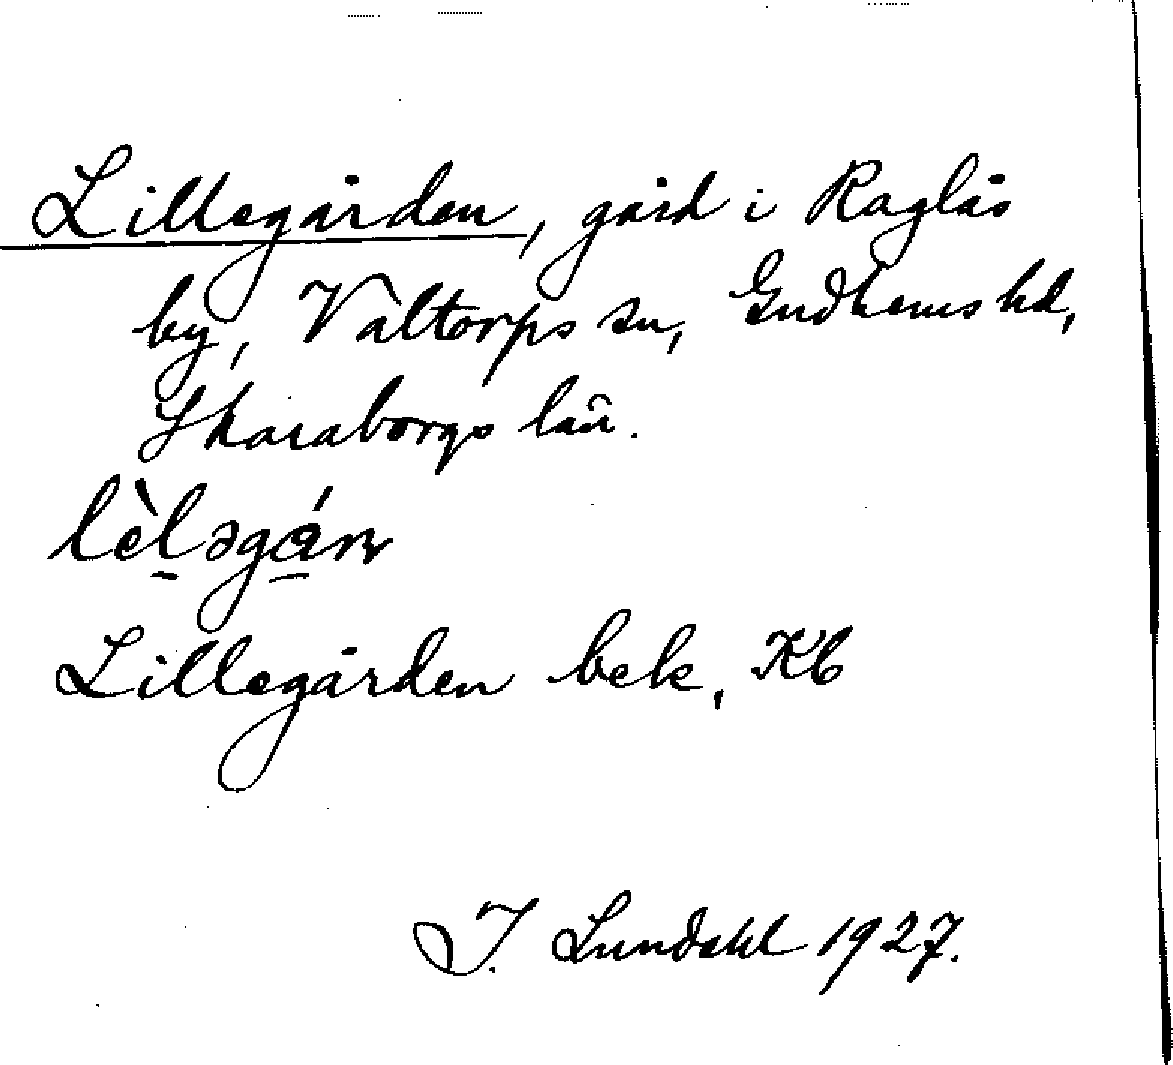 Lillegården, gård i Raglås
by, Valtorps sn, Gudhems hd,
Skaraborgs län.
lèləgɑ́ɳ
Lillegården bek, Kb
I. Lundahl 1927.